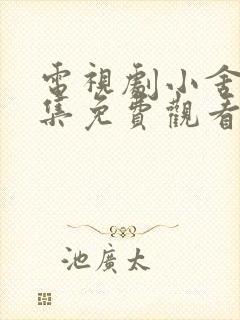 電視劇小舍
集免費觀看
池廣太